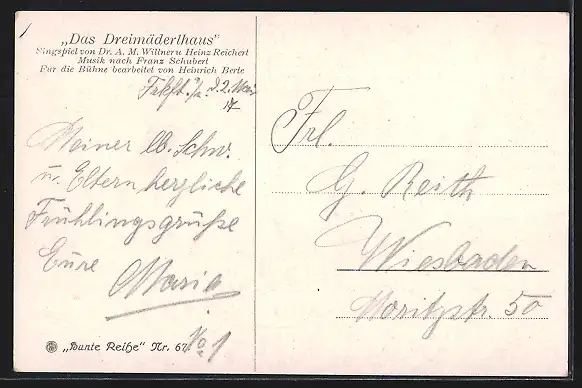 „Das Dreimäderlhaus"
Singspiel von Dr. A. M. Willner u Heinz Reichert
Musik nach Franz Schubert
Für die Bühne bearbeitet von Heinrich Berte
Frkft. 22. Mai
17
Meiner lb. Schw.
u. Eltern herzliche
Frühlingsgrüße
Eure
Maria
„Bunte Reihe" Nr. 67
No 1
Frl.
G. Reith
Wiesbaden
Moritzstr. 50